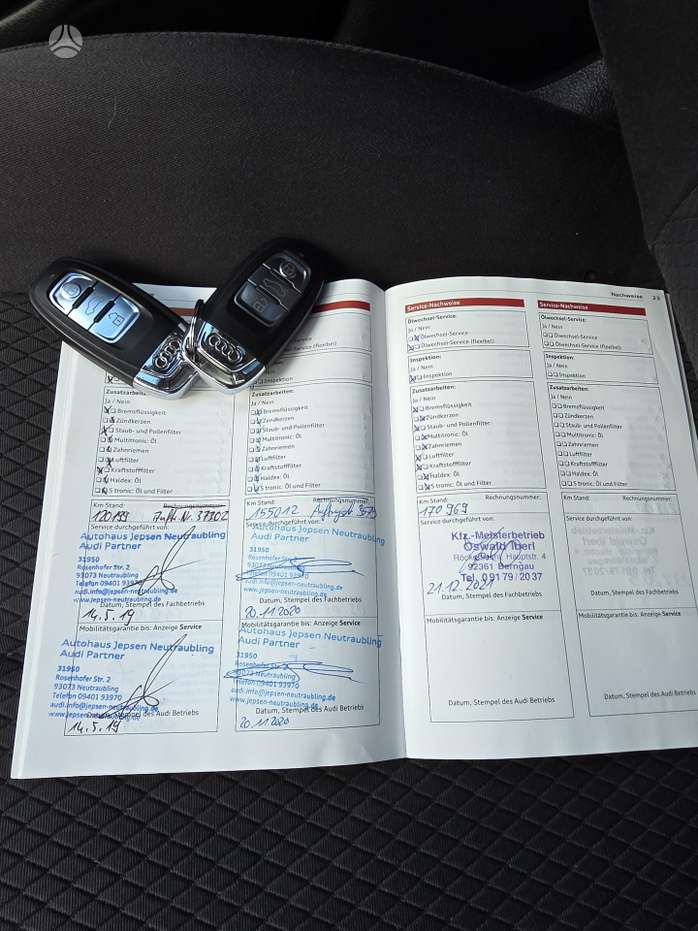 Nachweise 23
Service-Nachweise
Service-Nachweise
Inspektion
Zusatzarbeiten:
Ja / Nein
Bremsflüssigkeit
Zündkerzen
Staub- und Pollenfilter
Multitronic: Öl
Zahnriemen
Luftfilter
Kraftstofffilter
Haldex: Öl
S tronic: Öl und Filter
Km Stand: Rechnungsnummer:
120199
Service durchgeführt von:
Autohaus Jepsen Neutraubling
Audi Partner
31950
Rosenhofer Str. 2
93073 Neutraubling
Telefon 09401 93970
audi.info@jepsen-neutraubling.de
www.jepsen-neutraubling.de
Datum, Stempel des Fachbetriebs
14.5.19
Mobilitätsgarantie bis: Anzeige Service
Autohaus Jepsen Neutraubling
Audi Partner
31950
Rosenhofer Str. 2
93073 Neutraubling
Telefon 09401 93970
audi.info@jepsen-neutraubling.de
www.jepsen-neutraubling.de
Datum, Stempel des Audi Betriebs
14.5.19
Inspektion
Zusatzarbeiten:
Ja / Nein
Bremsflüssigkeit
Zündkerzen
Staub- und Pollenfilter
Multitronic: Öl
Zahnriemen
Luftfilter
Kraftstofffilter
Haldex: Öl
S tronic: Öl und Filter
Km Stand: Rechnungsnummer:
155012
Service durchgeführt von:
Autohaus Jepsen Neutraubling
Audi Partner
31950
Rosenhofer Str. 2
93073 Neutraubling
Telefon 09401 93970
audi.info@jepsen-neutraubling.de
www.jepsen-neutraubling.de
Datum, Stempel des Fachbetriebs
20.11.2020
Mobilitätsgarantie bis: Anzeige Service
Autohaus Jepsen Neutraubling
Audi Partner
31950
Rosenhofer Str. 2
93073 Neutraubling
Telefon 09401 93970
audi.info@jepsen-neutraubling.de
www.jepsen-neutraubling.de
Datum, Stempel des Audi Betriebs
20.11.2020
Ölwechsel-Service:
Ja / Nein
Ölwechsel-Service
Ölwechsel-Service (flexibel)
Inspektion:
Ja / Nein
Inspektion
Zusatzarbeiten:
Ja / Nein
Bremsflüssigkeit
Zündkerzen
Staub- und Pollenfilter
Multitronic: Öl
Zahnriemen
Luftfilter
Kraftstofffilter
Haldex: Öl
S tronic: Öl und Filter
Km Stand: Rechnungsnummer:
170969
Service durchgeführt von:
Kfz.-Meisterbetrieb
Oswald Iberl
Hauptstr. 4
92361 Berngau
Tel. 0 91 79 / 20 37
21.12.2021
Datum, Stempel des Fachbetriebs
Mobilitätsgarantie bis: Anzeige Service
Datum, Stempel des Audi Betriebs
Ölwechsel-Service:
Ja / Nein
Ölwechsel-Service
Ölwechsel-Service (flexibel)
Inspektion:
Ja / Nein
Inspektion
Zusatzarbeiten:
Ja / Nein
Bremsflüssigkeit
Zündkerzen
Staub- und Pollenfilter
Multitronic: Öl
Zahnriemen
Luftfilter
Kraftstofffilter
Haldex: Öl
S tronic: Öl und Filter
Km Stand: Rechnungsnummer:
Service durchgeführt von:
Datum, Stempel des Fachbetriebs
Mobilitätsgarantie bis: Anzeige Service
Datum, Stempel des Audi Betriebs